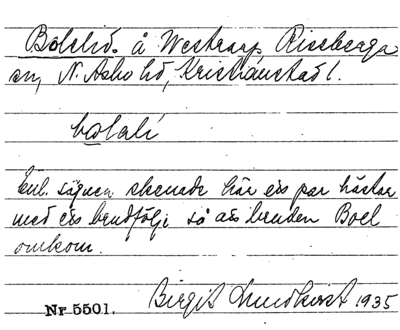 Bolslid. å Westrarp Risseberga
sn, N. Åsbo hd, Kristianstad l.
bolali
Enl. sägnen skenade här ett par hästar
med ett brudfölje så att bruden Boel
omkom.
Nr 5501. Birgit Lundkvist 1935